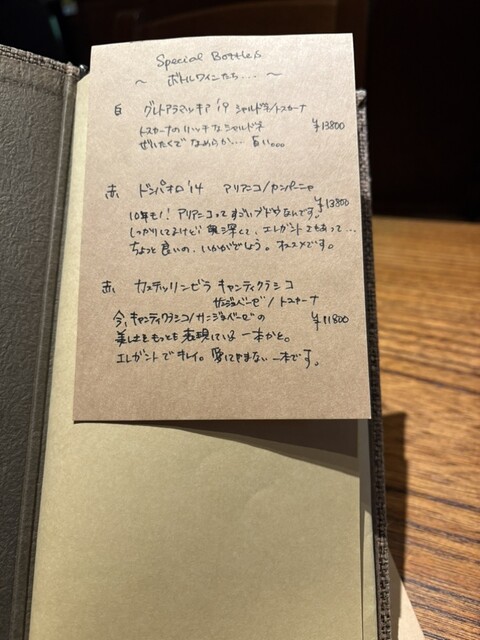 Special Bottles
~ ボトルワインたち... ~
白 グレトアラマッキア '19 シャルドネ/トスカーナ
トスカーナのリッチなシャルドネ ¥13800
ぜいたくでなめらか... 旨い。。。
赤 ドンパオロ '14 アリアニコ/カンパーニャ
¥13800
10年も!アリアニコってすごいブドウなんです。
しっかりしてるけど 奥深くて、エレガントでもあって...
ちょっと良いの、いかがでしょう。オススメです。
赤 カステッリンビラ キャンティクラシコ
サンジョベーゼ/トスカーナ
今、キャンティクラシコ/サンジョベーゼの ¥11800
美しさをもっとも表現している 一本かと。
エレガントでキレイ。愛してやまない 一本です。